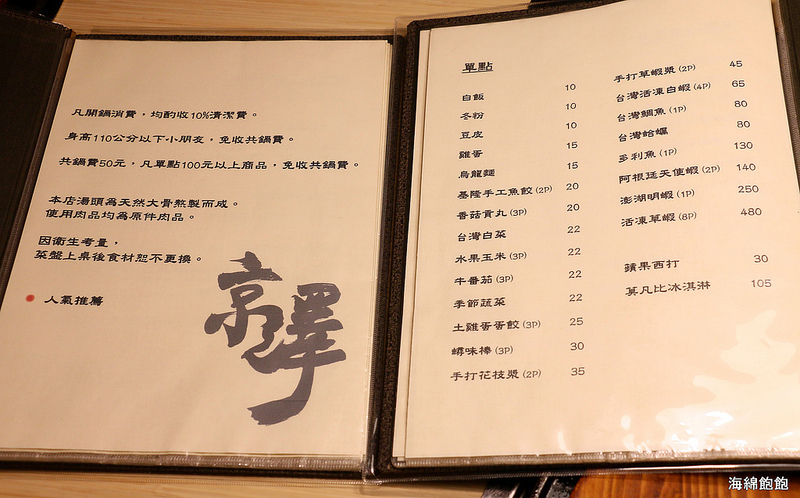 凡開鍋消費，均酌收10%清潔費。
身高110公分以下小朋友，免收共鍋費。
共鍋費50元，凡單點100元以上商品，免收共鍋費。
本店湯頭為天然大骨熬製而成。
使用肉品均為原件肉品。
因衛生考量，
菜盤上桌後食材恕不更換。
人氣推薦
京澤
單點
白飯 10
冬粉 10
豆皮 10
雞蛋 15
烏龍麵 15
基隆手工魚餃(2P) 20
番茄貢丸(3P) 20
台灣白菜 22
水果玉米(3P) 22
牛番茄(3P) 22
季節蔬菜 22
土雞蛋蛋餃(3P) 25
蟳味棒(3P) 30
手打花枝漿(2P) 35
手打草蝦漿(2P) 45
台灣活凍白蝦(4P) 65
台灣鯛魚(1P) 80
台灣蛤蠣 80
多利魚(1P) 130
阿根廷天使蝦(2P) 140
澎湖明蝦(1P) 250
活凍草蝦(8P) 480
蘋果西打 30
莫凡比冰淇淋 105
海綿飽飽